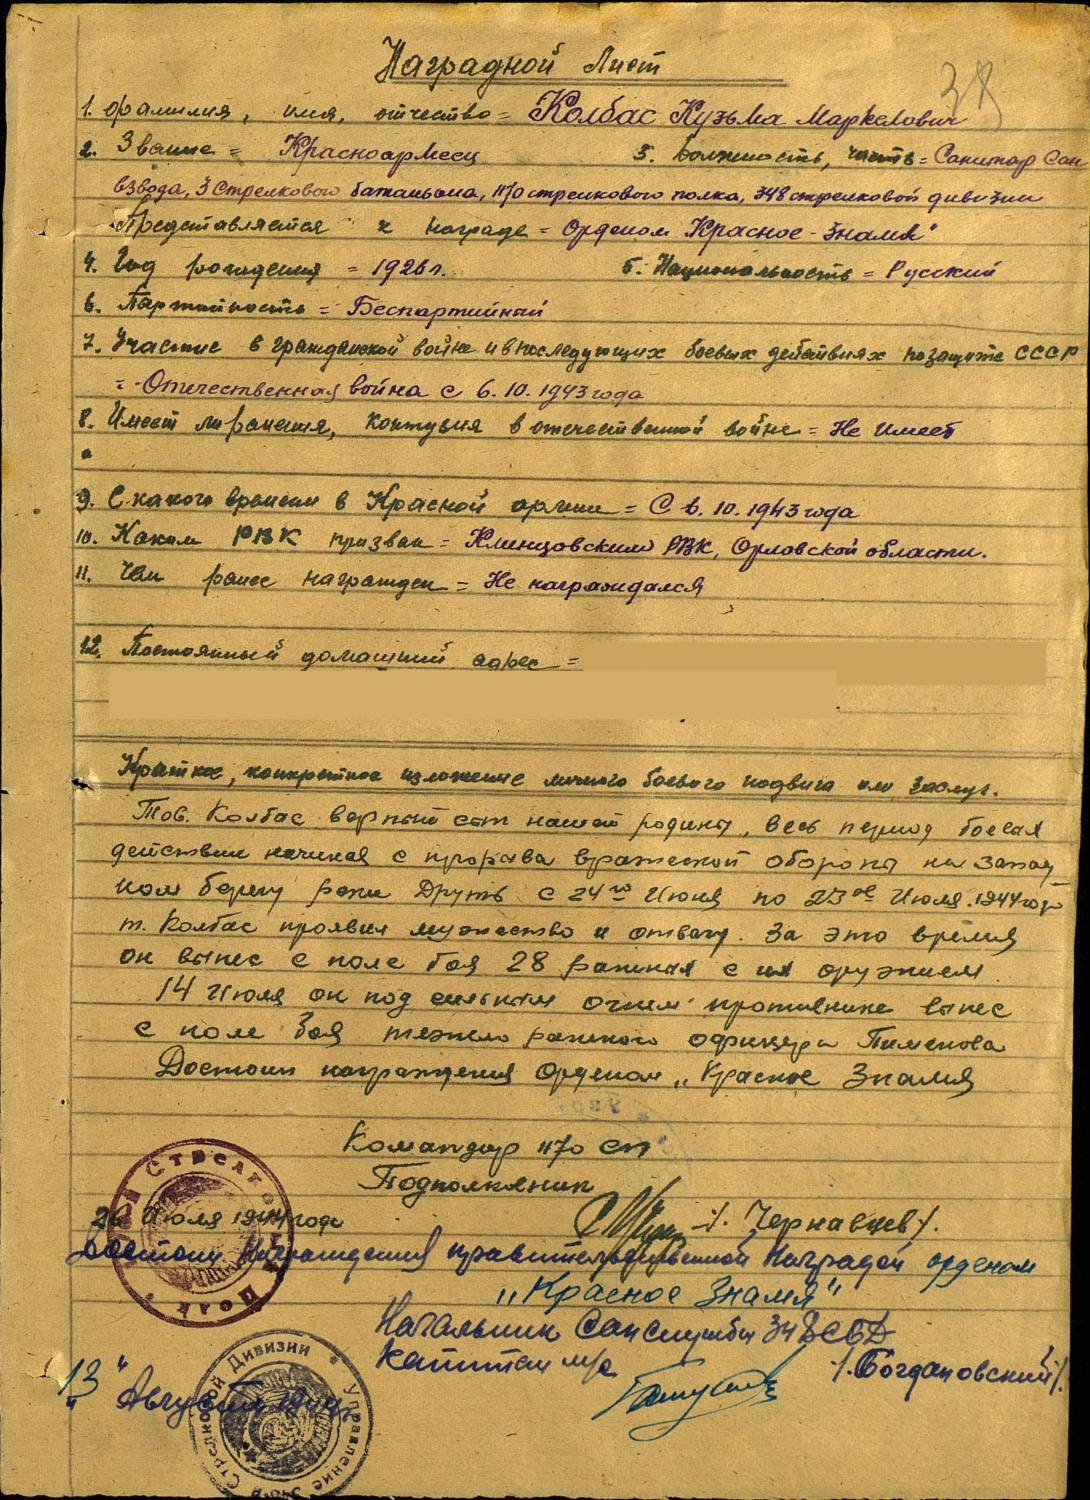 Наградной Лист
38
1. Фамилия, имя, отчество = Колбас Кузьма Маркелович
2. Звание = Красноармеец 3. Должность, часть = Санитар Сан
взвода, 3 Стрелкового батальона, 1170 стрелкового полка, 348 стрелковой дивизии
Представляется к награде = Орденом Красное-Знамя"
4. Год рождения = 1926 г. 5. Национальность = Русский
6. Партийность = Беспартийный
7. Участие в гражданской войне и в последующих боевых действиях по защите СССР
= Отечественная война с 6.10.1943 года
8. Имеет ли ранения, контузия в отечественной войне = Не имеет
9. С какого времени в Красной армии = С 6.10.1943 года
10. Каким РВК призван = Клинцовским РВК, Орловской области.
11. Чем ранее награжден = Не награждался
12. Постоянный домашний адрес =
Краткое, конкретное изложение личного боевого подвига или заслуг.
Тов. Колбас верный сын нашей родины, весь период боевых
действий начиная с прорыва вражеской обороны на запад
ном берегу реки Друть с 24го Июня по 25ое Июля 1944 года
т. Колбас проявил мужество и отвагу. За это время
он вынес с поле боя 28 раненых с их оружием.
14 Июля он под сильным огнем противника вынес
с поле боя тяжело раненого офицера Пименова
Достоин награждения Орденом „Красное Знамя
Командир 1170 СП
Подполковник
/. Чернавцев/.
26 Июля 1944 года
Стрелковый Полк
Достоин награждения правительственной Наградой орденом
„Красное Знамя"
Начальник Санслужбы 348 СБД
Капитан м/с /. Богдановский/.
13" Августа 1944
Управление 348-й Стрелковой Дивизии